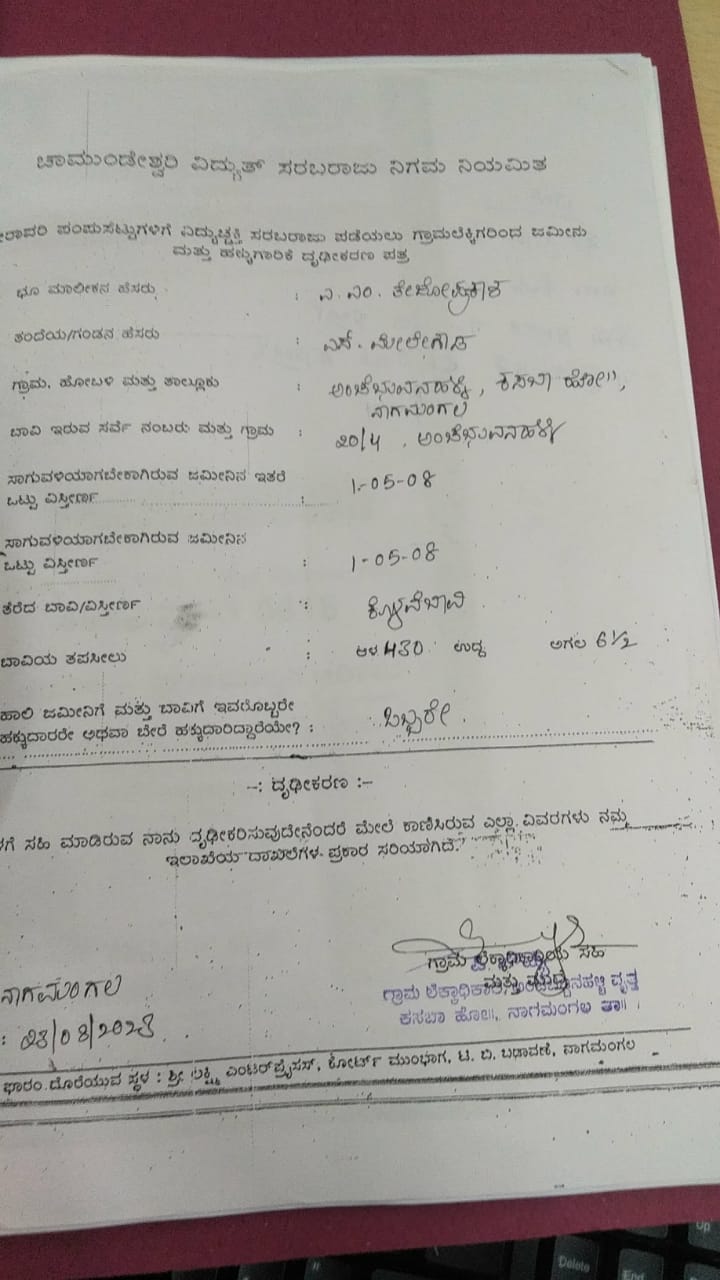 ಚಾಮುಂಡೇಶ್ವರಿ ವಿದ್ಯುತ್ ಸರಬರಾಜು ನಿಗಮ ನಿಯಮಿತ
ಪಂಪುಸೆಟ್ಟುಗಳಿಗೆ ವಿದ್ಯುಚ್ಛಕ್ತಿ ಸರಬರಾಜು ಪಡೆಯಲು ಗ್ರಾಮಲೆಕ್ಕಿಗರಿಂದ ಜಮೀನು
ಮತ್ತು ಹಕ್ಕುಗಾರಿಕೆ ದೃಢೀಕರಣ ಪತ್ರ
ಭೂ ಮಾಲೀಕನ ಹೆಸರು : ಎ. ಎಂ. ತೇಜೋಪ್ರಕಾಶ
ತಂದೆಯ/ಗಂಡನ ಹೆಸರು : ಎಸ್. ಮೇಲೇಗೌಡ
ಗ್ರಾಮ, ಹೋಬಳಿ ಮತ್ತು ತಾಲ್ಲೂಕು : ಅಂಚೆಭುವನಹಳ್ಳಿ, ಕಸಬಾ ಹೋ॥,
ನಾಗಮಂಗಲ
ಬಾವಿ ಇರುವ ಸರ್ವೆ ನಂಬರು ಮತ್ತು ಗ್ರಾಮ : 20/4, ಅಂಚೆಭುವನಹಳ್ಳಿ
ಸಾಗುವಳಿಯಾಗಬೇಕಾಗಿರುವ ಜಮೀನಿನ ಇತರೆ
ಒಟ್ಟು ವಿಸ್ತೀರ್ಣ : 1-05-08
ಸಾಗುವಳಿಯಾಗಬೇಕಾಗಿರುವ ಜಮೀನಿನ
ಒಟ್ಟು ವಿಸ್ತೀರ್ಣ : 1-05-08
ತೆರೆದ ಬಾವಿ/ವಿಸ್ತೀರ್ಣ : ಕೊಳವೆಬಾವಿ
ಬಾವಿಯ ತಪಸೀಲು : ಆಳ 430 ಉದ್ದ ಅಗಲ 6 1/2
ಹಾಲಿ ಜಮೀನಿಗೆ ಮತ್ತು ಬಾವಿಗೆ ಇವರೊಬ್ಬರೇ
ಹಕ್ಕುದಾರರೇ ಅಥವಾ ಬೇರೆ ಹಕ್ಕುದಾರಿದ್ದಾರೆಯೇ? : ಒಬ್ಬರೇ.
-: ದೃಢೀಕರಣ :-
ಸಹಿ ಮಾಡಿರುವ ನಾನು ದೃಢೀಕರಿಸುವುದೇನೆಂದರೆ ಮೇಲೆ ಕಾಣಿಸಿರುವ ಎಲ್ಲಾ ವಿವರಗಳು ನಮ್ಮ
ಇಲಾಖೆಯ ದಾಖಲೆಗಳ ಪ್ರಕಾರ ಸರಿಯಾಗಿದೆ.
ಗ್ರಾಮ ಲೆಕ್ಕಾಧಿಕಾರಿಯ ಸಹಿ
ಮತ್ತು ಮುದ್ರೆ
ಗ್ರಾಮ ಲೆಕ್ಕಾಧಿಕಾರಿ ವೃತ್ತ
ಕಸಬಾ ಹೋ॥, ನಾಗಮಂಗಲ ತಾ॥
ನಾಗಮಂಗಲ
: 23/08/2023
ಫಾರಂ ದೊರೆಯುವ ಸ್ಥಳ : ಶ್ರೀ ಲಕ್ಷ್ಮಿ ಎಂಟರ್‌ಪ್ರೈಸಸ್, ಕೋರ್ಟ್ ಮುಂಭಾಗ, ಟಿ. ಬಿ. ಬಡಾವಣೆ, ನಾಗಮಂಗಲ
Up
Delete
End